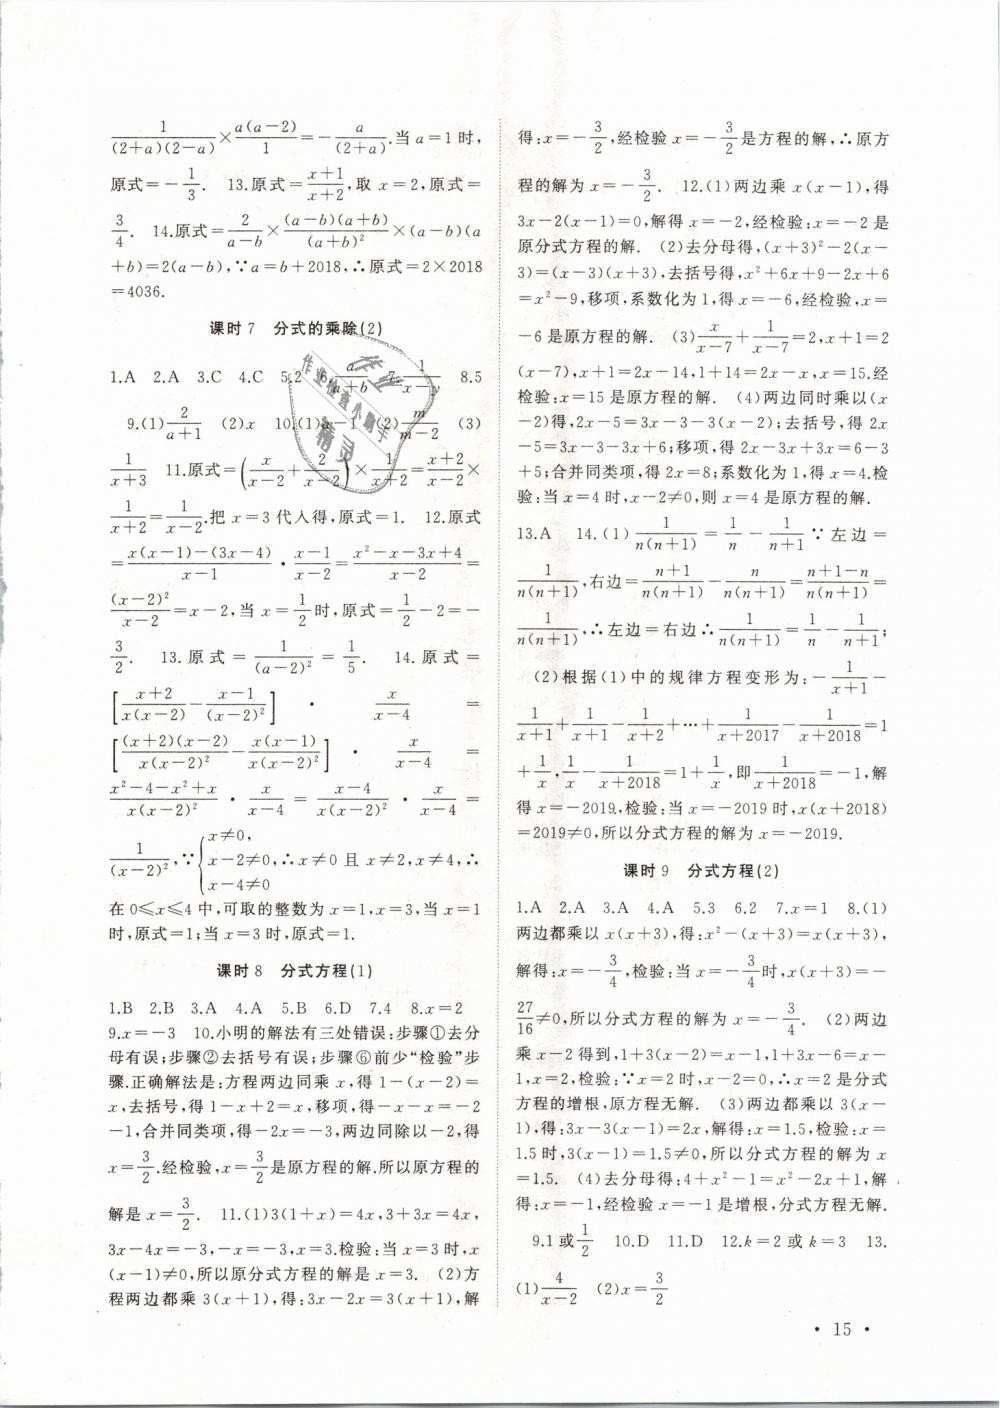 1/((2+a)(2-a))×a(a-2)/1=-a/(2+a).当a=1时,
原式=-1/3. 13.原式=(x+1)/(x+2),取x=2,原式=
3/4. 14.原式=2/(a-b)×(a-b)(a+b)/(a+b)²×(a-b)(a
+b)=2(a-b),∵a=b+2018,∴原式=2×2018
=4036.
课时7 分式的乘除(2)
1.A 2.A 3.C 4.C 5.2 6.a/(a+b) 7.1/(x-y) 8.5
9.(1)2/(a+1) (2)x 10.(1)a-1 (2)m/(m-2) (3)
1/(x+3) 11.原式=(x/(x-2)+2/(x-2))×1/(x+2)=(x+2)/(x-2)×
1/(x+2)=1/(x-2).把x=3代入得,原式=1. 12.原式
=(x(x-1)-(3x-4))/(x-1)·(x-1)/(x-2)=(x²-x-3x+4)/(x-2)=
(x-2)²/(x-2)=x-2,当x=1/2时,原式=1/2-2=-
3/2. 13.原式=1/(a-2)²=1/5. 14.原式=
[(x+2)/(x(x-2))-(x-1)/(x-2)²]·x/(x-4)=
[(x+2)(x-2)/(x(x-2)²)-x(x-1)/(x(x-2)²)]·x/(x-4)=
(x²-4-x²+x)/(x(x-2)²)·x/(x-4)=(x-4)/(x(x-2)²)·x/(x-4)=
1/(x-2)²,∵{x≠0,
x-2≠0,∴x≠0且x≠2,x≠4,∴
x-4≠0
在0≤x≤4中,可取的整数为x=1,x=3,当x=1
时,原式=1;当x=3时,原式=1.
课时8 分式方程(1)
1.B 2.B 3.A 4.A 5.B 6.D 7.4 8.x=2
9.x=-3 10.小明的解法有三处错误:步骤①去分
母有误;步骤②去括号有误;步骤⑥前少“检验”步
骤.正确解法是:方程两边同乘x,得1-(x-2)=
x,去括号,得1-x+2=x,移项,得-x-x=-2
-1,合并同类项,得-2x=-3,两边同除以-2,得
x=3/2.经检验,x=3/2是原方程的解.所以原方程的
解是x=3/2. 11.(1)3(1+x)=4x,3+3x=4x,
3x-4x=-3,-x=-3,x=3.检验:当x=3时,x
(x-1)≠0,所以原分式方程的解是x=3. (2)方
程两边都乘3(x+1),得:3x-2x=3(x+1),解
得:x=-3/2,经检验x=-3/2是方程的解,∴原方
程的解为x=-3/2. 12.(1)两边乘x(x-1),得
3x-2(x-1)=0,解得x=-2,经检验:x=-2是
原分式方程的解. (2)去分母得,(x+3)²-2(x-
3)=(x-3)(x+3),去括号得,x²+6x+9-2x+6
=x²-9,移项,系数化为1,得x=-6,经检验,x=
-6是原方程的解. (3)x/(x-7)+1/(x-7)=2,x+1=2
(x-7),x+1=2x-14,1+14=2x-x,x=15.经
检验:x=15是原方程的解. (4)两边同时乘以(x
-2)得,2x-5=3x-3-3(x-2);去括号,得2x
-5=3x-3-3x+6;移项,得2x-3x+3x=6-3
+5;合并同类项,得2x=8;系数化为1,得x=4.检
验:当x=4时,x-2≠0,则x=4是原方程的解.
13.A 14.(1)1/(n(n+1))=1/n-1/(n+1)∵左边=
1/(n(n+1)),右边=(n+1)/(n(n+1))-n/(n(n+1))=(n+1-n)/(n(n+1))=
1/(n(n+1)),∴左边=右边∴1/(n(n+1))=1/n-1/(n+1);
(2)根据(1)中的规律方程变形为:-1/(x+1)-
1/(x+1)+1/(x+1)-1/(x+2)+…+1/(x+2017)-1/(x+2018)=1
+1/x,1/x-1/(x+2018)=1+1/x,即1/(x+2018)=-1,解
得x=-2019,检验:当x=-2019时,x(x+2018)
=2019≠0,所以分式方程的解为x=-2019.
课时9 分式方程(2)
1.A 2.A 3.A 4.A 5.3 6.2 7.x=1 8.(1)
两边都乘以x(x+3),得:x²-(x+3)=x(x+3),
解得:x=-3/4,检验:当x=-3/4时,x(x+3)=-
27/16≠0,所以分式方程的解为x=-3/4. (2)两边
乘x-2得到,1+3(x-2)=x-1,1+3x-6=x-
1,x=2,检验:∵x=2时,x-2=0,∴x=2是分式
方程的增根,原方程无解. (3)两边都乘以3(x-
1),得:3x-3(x-1)=2x,解得:x=1.5,检验:x=
1.5时,3(x-1)=1.5≠0,所以分式方程的解为x
=1.5. (4)去分母得:4+x²-1=x²-2x+1,解
得:x=-1,经检验x=-1是增根,分式方程无解.
9.1或1/2 10.D 11.D 12.k=2或k=3 13.
(1)4/(x-2) (2)x=3/2
· 15 ·
作业
作业检查小助手
精灵